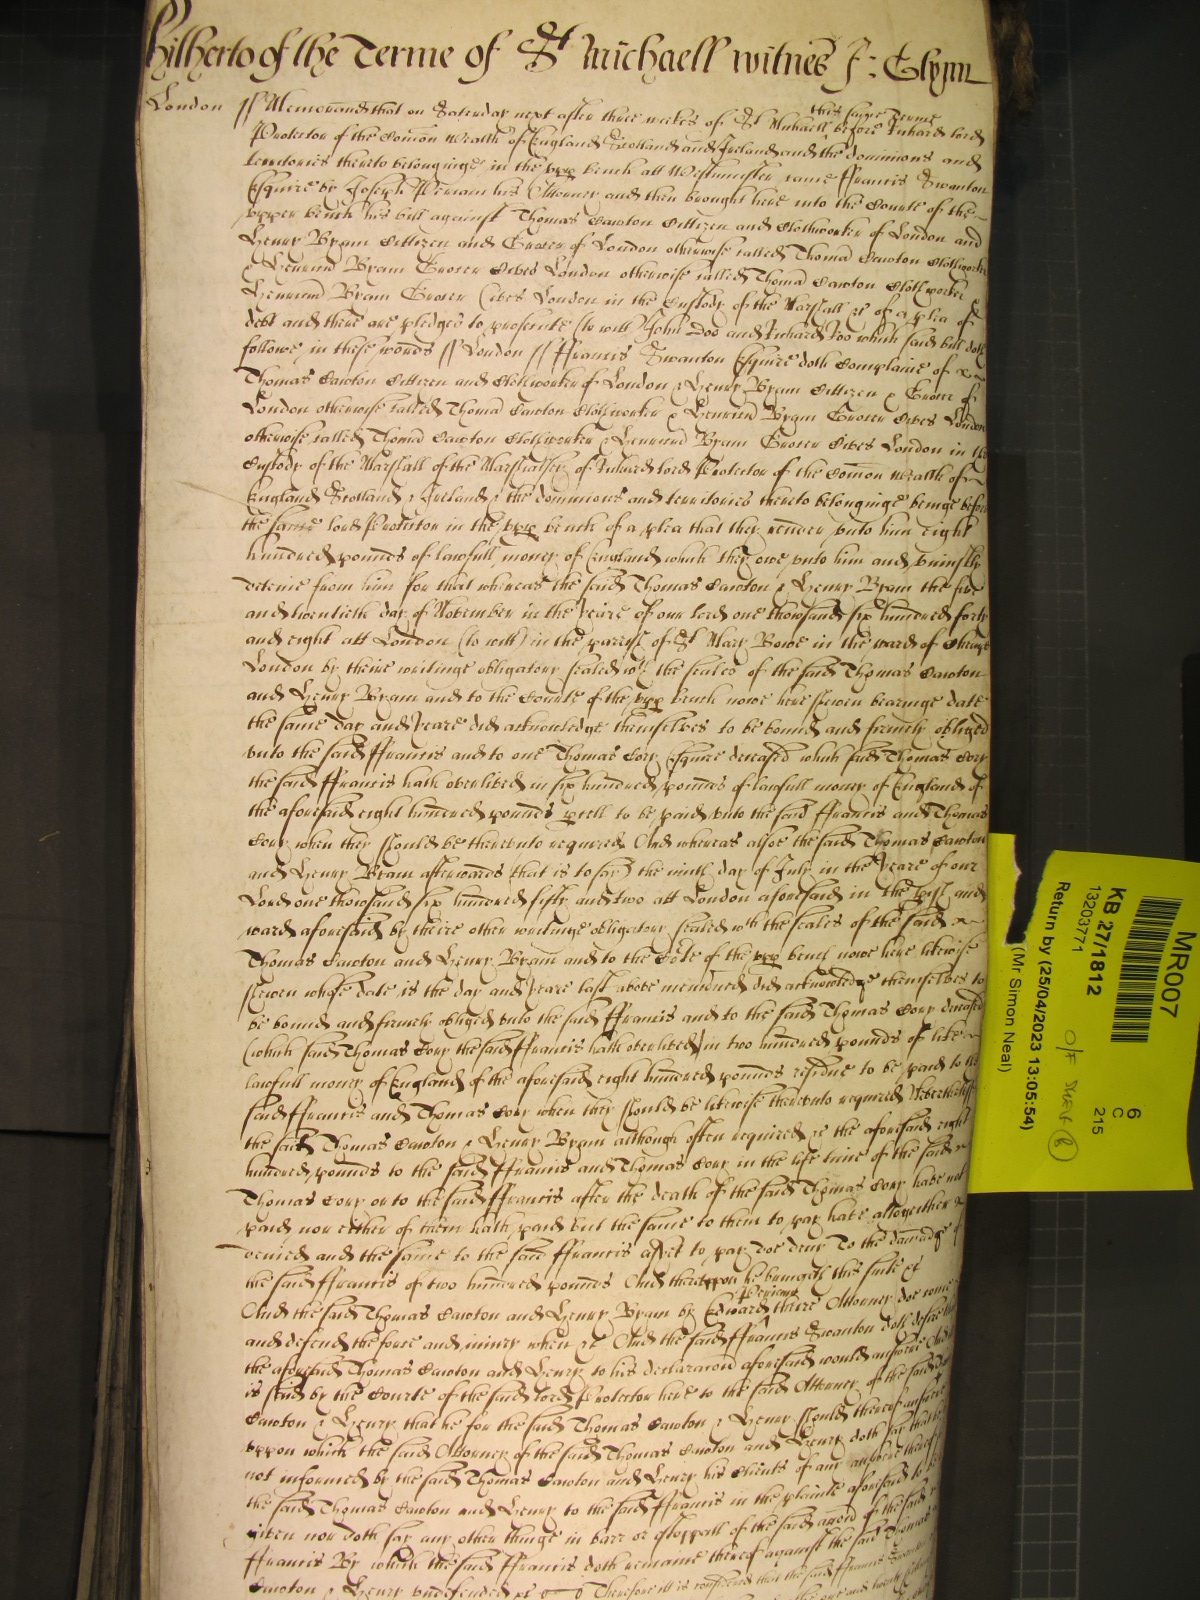 hitherto of the Terme of St Michaell witnes J: Glynn
London ss Memorand that on Saterday next after three weekes of St Michaell this same Terme before Richard lord
Protector of the Comon wealth of England Scotland and Ireland and the dominions and
territories thereto belonginge in the upp bench att Westminster came ffrancis Swanton
Esquire by Joseph Periam his Attorney and then brought here into the Courte of the
upper bench his bill against Thomas Cawton Cittizen and Clothworker of London and
Henry Bram Cittizen and Grocer of London otherwise called Thomā Cawton Clothworker
& Henricū Bram Grocer Cives London otherwise called Thomā Cawton Clothworker &
Henricū Bram Grocer Cives London in the Custody of the Marshall &c of a plea of
debt and there are pledges to prosecute (to witt) John Doo and Richard Roo which said bill doth
followe in these words ss London ss ffrancis Swanton Esquire doth Complaine of
Thomas Cawton Cittizen and Clothworker of London & Henry Bram Cittizen & Grocer of
London otherwise called Thomā Cawton Clothworker & Henricū Bram Grocer Cives London
otherwise called Thomā Cawton Clothworker & Henricū Bram Grocer Cives London in the
Custody of the Marshall of the Marshalsey of Richard lord Protector of the Comon wealth of
England Scotland & Ireland & the dominions and territories thereto belonginge beinge before
the same lord Protector in the upp bench of a plea that they render unto him eight
hundred pounds of lawfull money of England which they owe unto him and uniustly
deteine from him for that whereas the said Thomas Cawton & Henry Bram the five
and twentieth day of November in the yeare of our lord one thousand six hundred forty
and eight att London (to witt) in the parish of St Mary Bowe in the ward of Cheape
London by theire writinge obligatory sealed wth the seales of the said Thomas Cawton
and Henry Bram and to the Courte of the upp bench nowe here shewen bearinge date
the same day and yeare did acknowledge themselves to be bound and firmely obliged
unto the said ffrancis and to one Thomas Cory Esquire deceased which said Thomas Cory
the said ffrancis hath overlived in six hundred pounds of lawfull money of England of
the aforesaid eight hundred pounds pcell to be paid unto the said ffrancis and Thomas
Cory when they should be thereunto required And whereas alsoe the said Thomas Cawton
and Henry Bram afterwards (that is to say) the ninth day of July in the yeare of our
Lord one thousand six hundred fifty and two att London aforesaid in the pish and
ward aforesaid by theire other writinge obligatory sealed wth the seales of the said
Thomas Cawton and Henry Bram and to the Corte of the upp bench nowe here likewise
shewen whose date is the day and yeare last above menconed did acknowledge themselves to
be bound and firmely obliged unto the said ffrancis and to the said Thomas Cory deceased
(which said Thomas Cory the said ffrancis hath overlived) in two hundred pounds of like
lawfull money of England of the aforesaid eight hundred pounds residue to be paid to the
said ffrancis and Thomas Cory when they should be likewise thereunto required Neverthelesse
the said Thomas Cawton & Henry Bram although often required &c the aforesaid eight
hundred pounds to the said ffrancis and Thomas Cory in the life time of the said
Thomas Cory or to the said ffrancis after the death of the said Thomas Cory have not
paid nor either of them hath paid but the same to them to pay have altogeither
denied and the same to the said ffrancis as yet to pay doe deny To the damage of
the said ffrancis of two hundred pounds And thereuppon he bringeth this suite &c
And the said Thomas Cawton and Henry Bram by Edward Periam theire Attorney doe come
and defend the force and iniury when &c And the said ffrancis Swanton doth desire that
the aforesaid Thomas Cawton and Henry to his declaracon aforesaid would answere And it
is said by the Courte of the said lord Protector here to the said Attorney of the said Thomas
Cawton & Henry that he for the said Thomas Cawton & Henry should thereof answere
uppon which the said Attorney of the said Thomas Cawton and Henry doth say that he is
not informed by the said Thomas Cawton and Henry his Clients of any answere thereof for
the said Thomas Cawton and Henry to the said ffrancis in the plainte aforesaid to be
given nor doth say any other thinge in barr or estoppall of the said accon of the said
ffrancis By which the said ffrancis doth remaine thereof against the said Thomas
Cawton & Henry undefended &c Therefore itt is considered that the said ffrancis Swanton
MR007
KB 27/1812
13203771
Return by (25/04/2023 13:05:54)
(Mr Simon Neal)
6
C
215
O/F SHELF 8